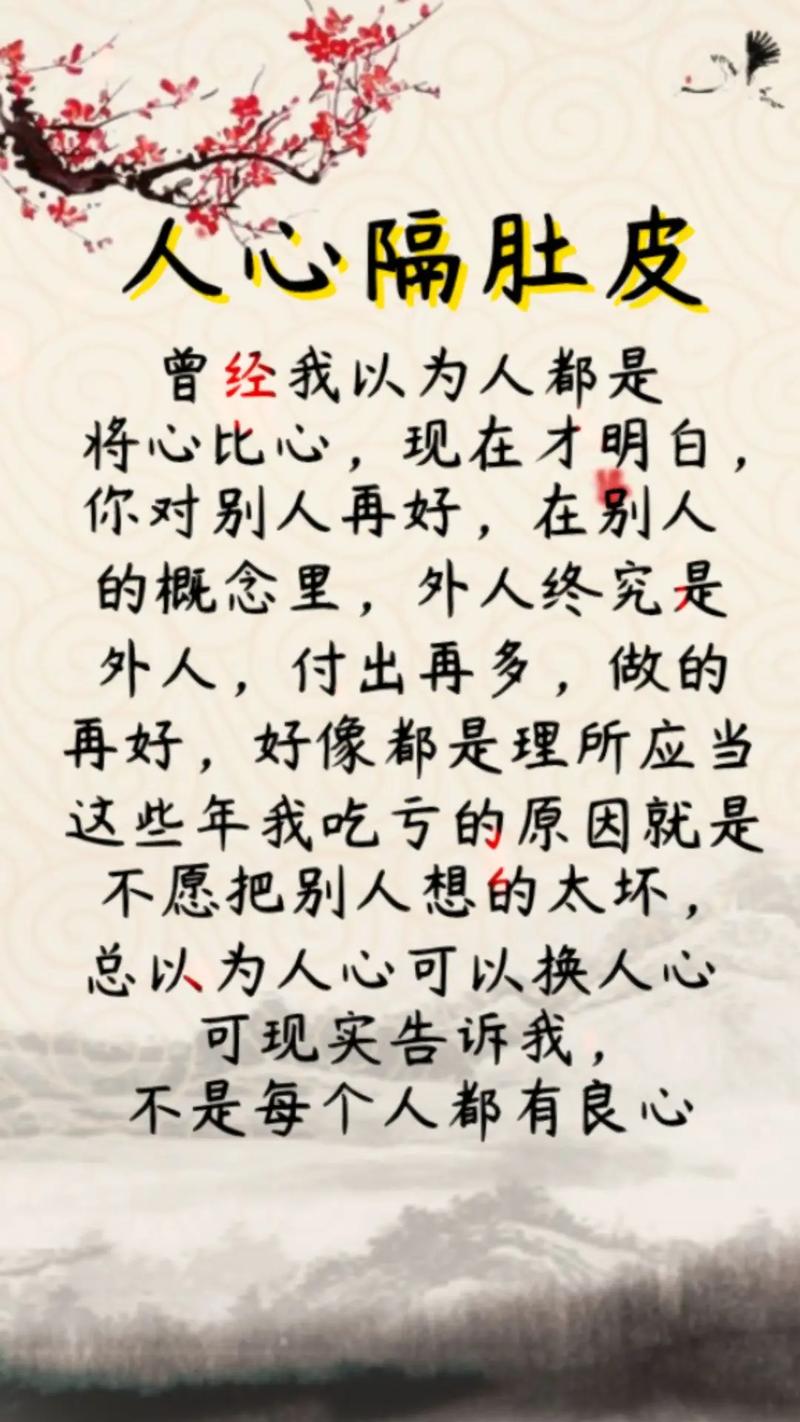 人心隔肚皮
曾经我以为人都是
将心比心，现在才明白，
你对别人再好，在别人
的概念里，外人终究是
外人，付出再多，做的
再好，好像都是理所应当
这些年我吃亏的原因就是
不愿把别人想的太坏，
总以为人心可以换人心
可现实告诉我，
不是每个人都有良心